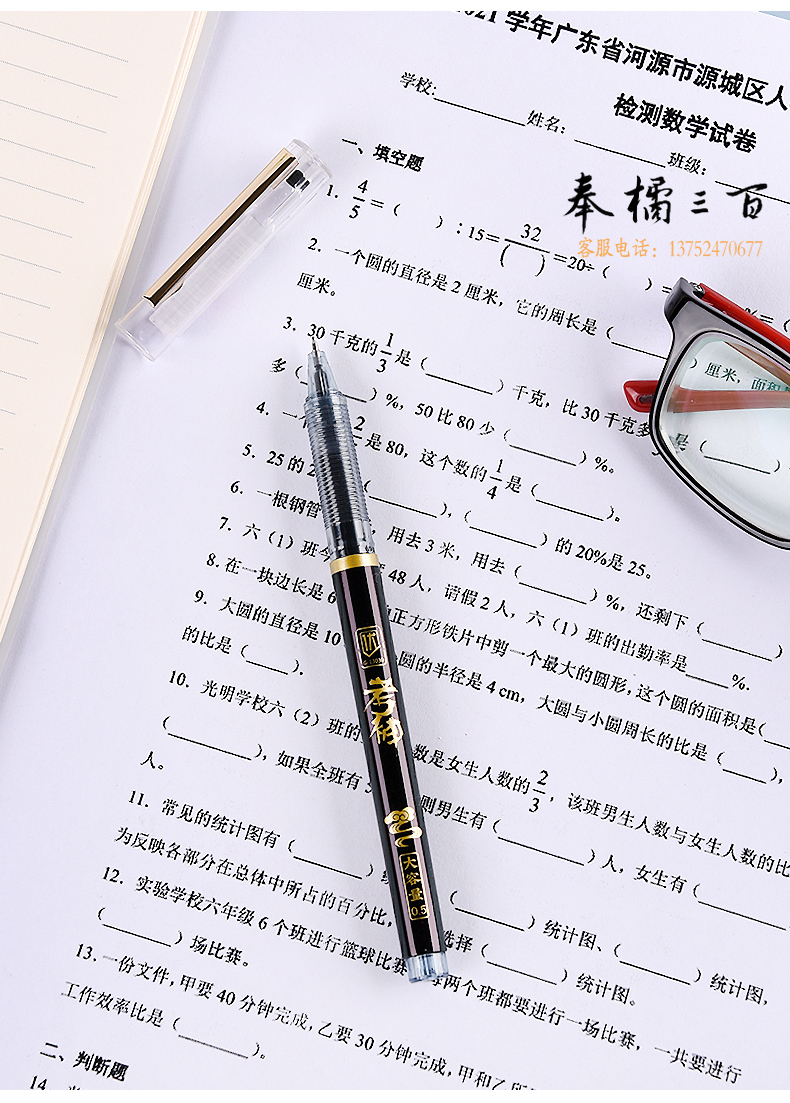 2021 学年广东省河源市源城区人
检测数学试卷
学校: 姓名: 班级:
奉橘三百
客服电话：13752470677
一、填空题
1. 4/5 =（ ）：15= 32/( ) =20÷（ ）= %=（
2. 一个圆的直径是 2 厘米，它的周长是（ ）厘米，面积
厘米。
3. 30 千克的 1/3 是（ ）千克，比 30 千克多 是（
多（ ）%，50 比 80 少（ ）%。
4. 一 2 是 80，这个数的 1/4 是（ ）。
5. 25 的 2 （ ），（ ）的 20%是 25。
6. 一根钢管 用去 3 米，用去（ ）%，还剩下（ ）
7. 六（1）班 48 人，请假 2 人，六（1）班的出勤率是 %.
8. 在一块边长是 6 正方形铁片中剪一个最大的圆形，这个圆的面积是(
9. 大圆的直径是 10 圆的半径是 4 cm，大圆与小圆周长的比是（ ），
的比是（ ）.
10. 光明学校六（2）班的 数是女生人数的 2/3，该班男生人数与女生人数的比
（ ），如果全班有 则男生有（ ）人，女生有（
人。
11. 常见的统计图有（ ）统 （ ）统计图、（ ）统计图，
为反映各部分在总体中所占的百分比， 选择（ ）统计图。
12. 实验学校六年级 6 个班进行篮球比赛 每两个班都要进行一场比赛，一共要进行
（ ）场比赛。
13. 一份文件，甲要 40 分钟完成，乙要 30 分钟完成，甲和乙
工作效率比是（ ）。
二、判断题
14.
考
大容量
0.5